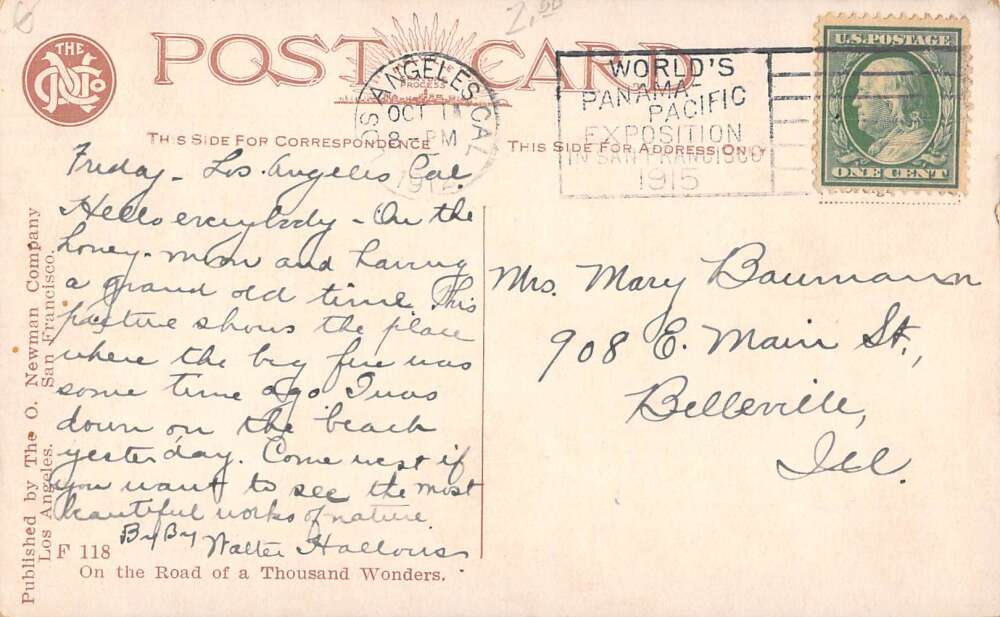 6
2.00
THE
O N Co
POST CARD
PROCESS
LOS ANGELES, CAL.
OCT 1
8-PM
191
WORLD'S
PANAMA
PACIFIC
EXPOSITION
IN SAN FRANCISCO
1915
U.S. POSTAGE
ONE CENT
THIS SIDE FOR CORRESPONDENCE
THIS SIDE FOR ADDRESS ONLY
Friday - Los Angeles Cal.
Hello everybody - On the
honey-moon and having
a grand old time. This
picture shows the place
where the big fire was
some time ago I was
down on the beach
yesterday. Come west if
you want to see the most
beautiful works of nature
By By
Walter
Mrs. Mary Baumann
908 E. Main St.,
Belleville,
Ill.
Published by The O. Newman Company
Los Angeles. San Francisco.
F 118
On the Road of a Thousand Wonders.